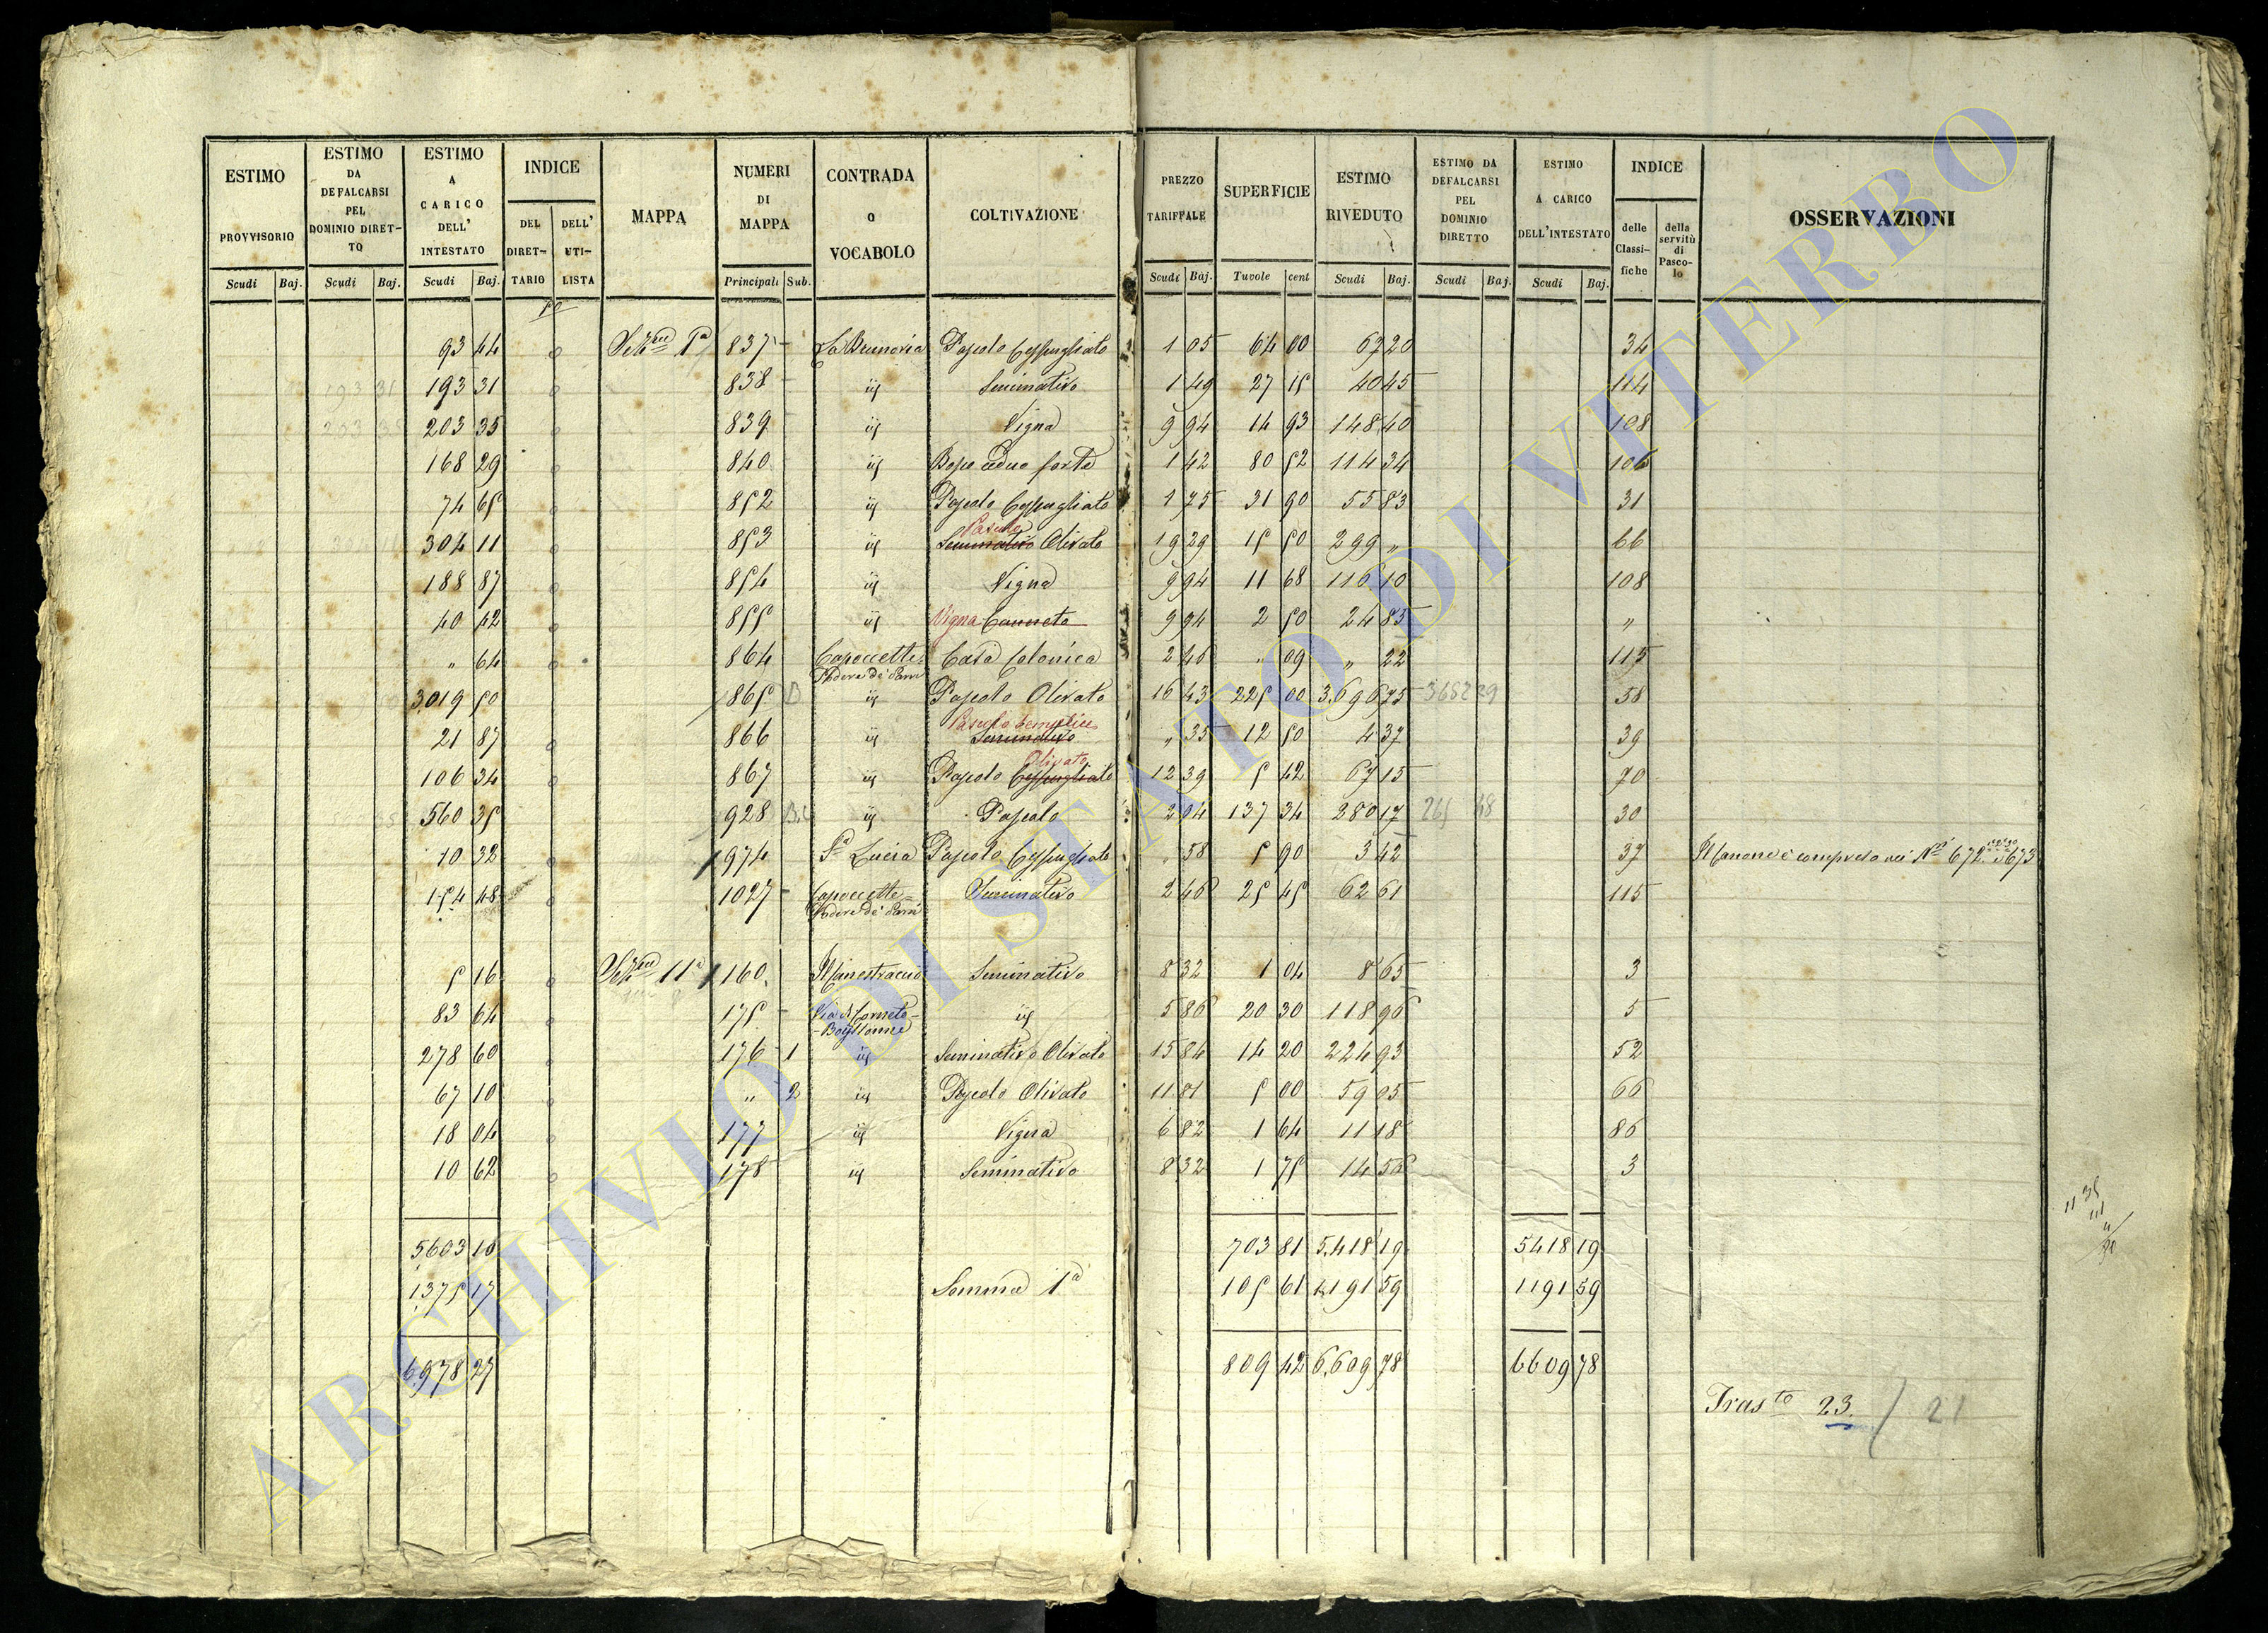 ESTIMO PROVVISORIO Scudi Baj.
ESTIMO DA DEFALCARSI PEL DOMINIO DIRET-TO Scudi Baj.
ESTIMO A CARICO DELL' INTESTATO Scudi Baj.
INDICE DEL DIRET-TARIO DELL' UTI-LISTA
MAPPA
NUMERI DI MAPPA Principali Sub.
CONTRADA O VOCABOLO
COLTIVAZIONE
PREZZO TARIFFALE Scudi Baj.
SUPERFICIE Tuvole cent
ESTIMO RIVEDUTO Scudi Baj.
ESTIMO DA DEFALCARSI PEL DOMINIO DIRETTO Scudi Baj.
ESTIMO A CARICO DELL'INTESTATO Scudi Baj.
INDICE delle Classi-fiche della servitù di Pasco-lo
OSSERVAZIONI
93 44 Sez.ne 1a 837 - La Brunoria Pascolo Cespugliato 1 05 64 00 67 20 34
193 31 193 31 838 - iij Seminativo 1 49 27 15 40 45 114
203 35 203 35 839 iij Vigna 9 94 14 93 148 40 108
168 29 840 iij Bosco ceduo forte 1 42 80 52 114 34 106
74 65 852 iij Pascolo Cespugliato 1 75 31 90 55 83 31
304 11 853 iij Pascolo Seminativo Olivato 19 29 15 50 299 " 66
188 87 854 iij Vigna 9 94 11 68 116 10 108
40 42 855 iij Vigna Canneto 9 94 2 50 24 85 "
" 64 864 Capoccette Podere de' Parri Casa Colonica 2 46 " 09 " 22 115
3019 50 865 iij Pascolo Olivato 16 43 225 00 3.696 75 3652 29 58
21 87 866 iij Pascolo Semplice Seminativo " 35 12 50 4 37 39
106 34 867 iij Pascolo Cespugliato Olivato 12 39 5 42 67 15 70
560 35 928 iij Pascolo 2 04 137 34 280 17 265 48 30
10 32 974 Sa Lucia Pascolo Cespugliato " 58 5 90 3 42 37 Il Canone è compreso nei Ni 672 673
154 48 1027 - Capoccette Podere de' Parri Seminativo 2 46 25 45 62 61 115
5 16 Sez.ne 11a 160 Seminativo 8 32 1 04 8 65 3
83 64 175 - Via di Corneto iij 5 86 20 30 118 96 5
278 60 176 1 iij Seminativo Olivato 15 84 14 20 224 93 52
67 10 " 2 iij Pascolo Olivato 11 81 5 00 59 05 66
18 04 177 iij Vigna 6 82 1 64 11 18 86
10 62 178 iij Seminativo 8 32 1 75 14 56 3
5603 10 703 81 5.418 19 5418 19
1375 17 Somma 1a 105 61 1.191 59 1191 59
6978 27 809 42 6.609 78 6609 78
Trasto 23. / 21
ARCHIVIO DI STATO DI VITERBO